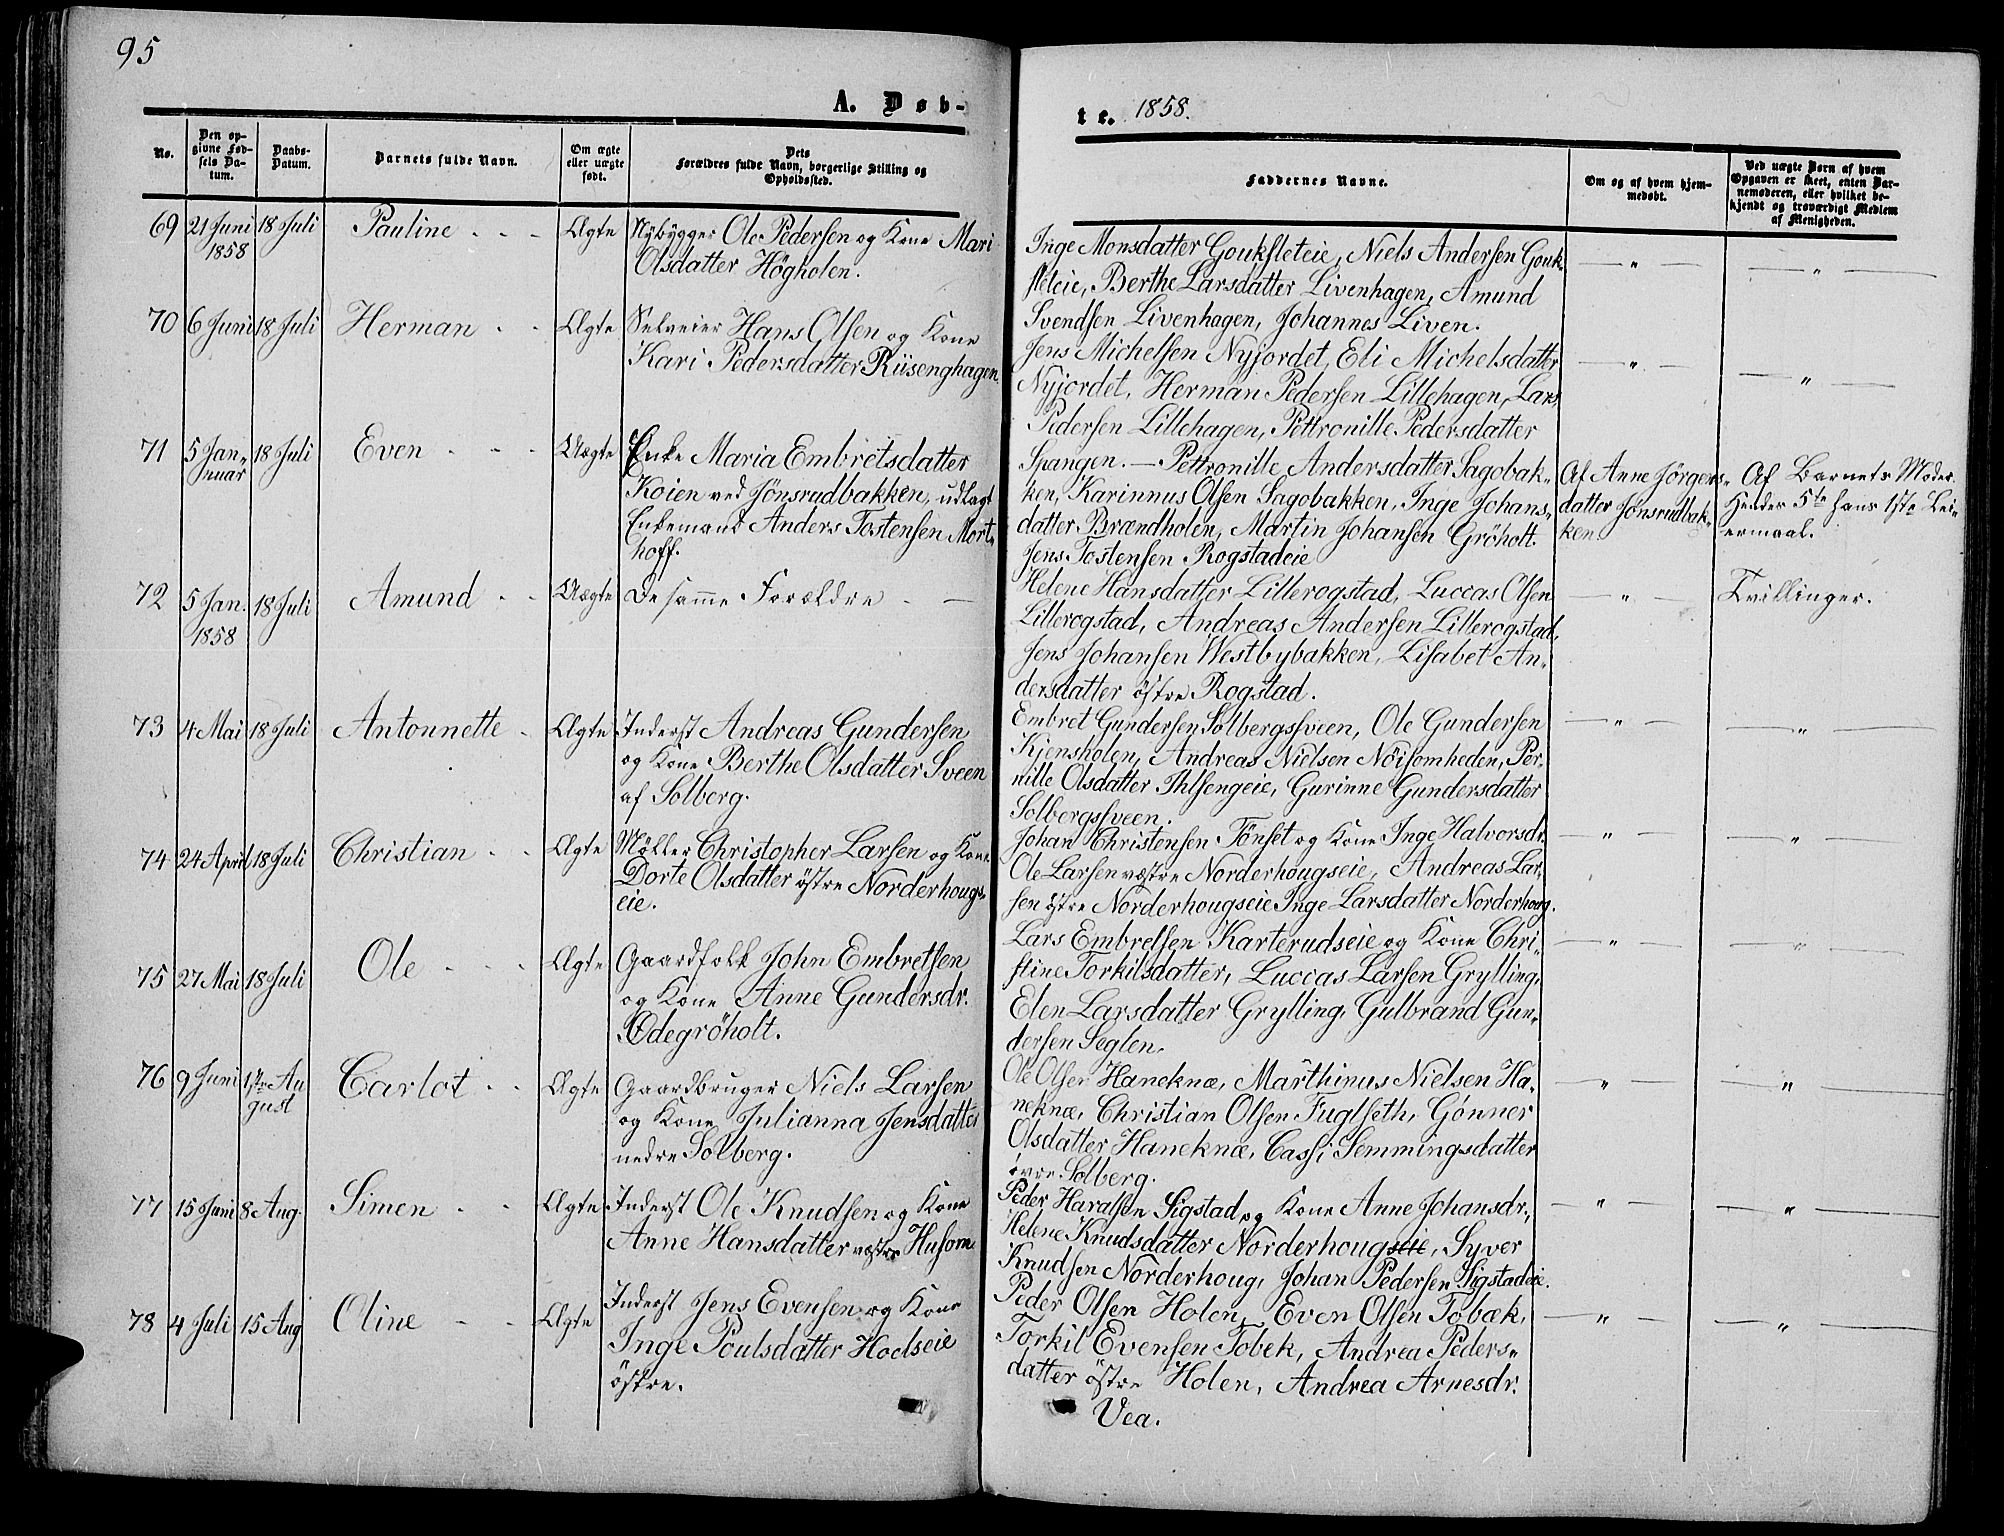 95
A. Døb-
te. 1858.
No.
Den op-
givne Fød-
sels Da-
tum.
Daabs-
Datum.
Barnets fulde Navn.
Om ægte
eller uægte
født.
Dets
Forældres fulde Navn, borgerlige Stilling og
Opholdssted.
Faddernes Navne.
Om og af hvem hjem-
medøbt.
Ved uægte Børn af hvem
Opgaven er skeet, enten Bar-
nemoderen, eller hvilket be-
kjendt og troværdigt Medlem
af Menigheden.
69 21 Juni 18 Juli Pauline - - - Ægte Nybygger Ole Pedersen og Kone Mari
1858 Olsdatter Högholen.
Inge Monsdatter Goukfleteie, Niels Andersen Gouk-
fleteie, Berthe Larsdatter Livenhagen, Amund
Svendsen Livenhagen, Johannes Liven.
— " — — " —
70 6 Juni 18 Juli Herman - - Ægte Selveier Hans Olsen og Kone
Kari Pedersdatter Riisenghagen.
Jens Michelsen Nyjordet, Eli Michelsdatter
Nyjordet, Herman Pedersen Lillehagen, Lars
Pedersen Lillehagen, Pettronille Pedersdatter
Spangen. —
— " — — " —
71 5 Jan- 18 Juli Even - - - Uægte Enke Maria Embretsdatter
nuar Koien ved Jönsrudbakken, udlagt
Enkemand Anders Tostensen Mort-
hoff.
Pettronille Andersdatter Sagobak-
ken, Karinnus Olsen Sagobakken, Inge Johans-
datter Brændholen, Martin Johansen Gröholt.
Jens Tostensen Rogstadeie
Af Anne Jörgens-
datter Jönsrudbak-
ken.
Af Barnets Moder.
Hendes 5te hans 1ste Lei-
ermaal.
72 5 Jan. 18 Juli Amund - - Uægte De samme Forældre - —
1858
Helene Hansdatter Lillerogstad, Luccas Olsen
Lillerogstad, Andreas Andersen Lillerogstad,
Jens Johansen Westbybakken, Lisabet An-
dersdatter östre Rogstad.
— " — Tvillinger.
73 4 Mai 18 Juli Antonnette - Ægte Inderst Andreas Gundersen
og Kone Berthe Olsdatter Sveen
af Solberg.
Embret Gundersen Solbergssveen, Ole Gundersen
Kjensholen, Andreas Nielsen Nöisomheden, Per-
nille Olsdatter Ihlsengeie, Gurinne Gundersdatter
Solbergsveen.
— " — — " —
74 24 April 18 Juli Christian - - Ægte Möller Christopher Larsen og Kone
Dorte Olsdatter östre Norderhougs-
eie.
Johan Christensen Tönset og Kone Inge Halvorsdr.
Ole Larsen væstre Norderhougseie, Andreas Lar-
sen östre Norderhougseie Inge Larsdatter Norderhoug.
— " — — " —
75 27 Mai 18 Juli Ole - - - Ægte Gaardfolk John Embretsen
og Kone Anne Gundersdr.
Ødegröholt.
Lars Embretsen Karterudseie og Kone Chri-
stine Torkilsdatter, Luccas Larsen Grylling,
Elen Larsdatter Grylling, Gulbrand Gun-
dersen Seglen.
— " — — " —
76 9 Juni 1ste Au Carlot - - Ægte Gaardbruger Niels Larsen
gust og Kone Julianna Jensdatter
nedre Solberg.
Ole Olsen Haneknæ, Marthinus Nielsen Ha-
neknæ, Christian Olsen Fuglseth, Gönner
Olsdatter Haneknæ, Cassi Semmingsdatter
övre Solberg.
" — — " —
77 15 Juni 8 Aug. Simen - - Ægte Inderst Ole Knudsen og Kone
Anne Hansdatter væstre Husom
Peder Haralsen Sigstad og Kone Anne Johansdr.,
Helene Knudsdatter Norderhougseie, Syver
Knudsen Norderhoug, Johan Pedersen Sigstadeie.
— " — — " —
78 4 Juli 15 Aug Oline - - Ægte Inderst Jens Evensen og Kone
Inge Poulsdatter Hoelseie
östre.
Peder Olsen Holen, Even Olsen Tobæk,
Torkil Evensen Tobek, Andrea Peders-
datter östre Holen, Andrea Arnesdr.
Vea.
— " — — " —